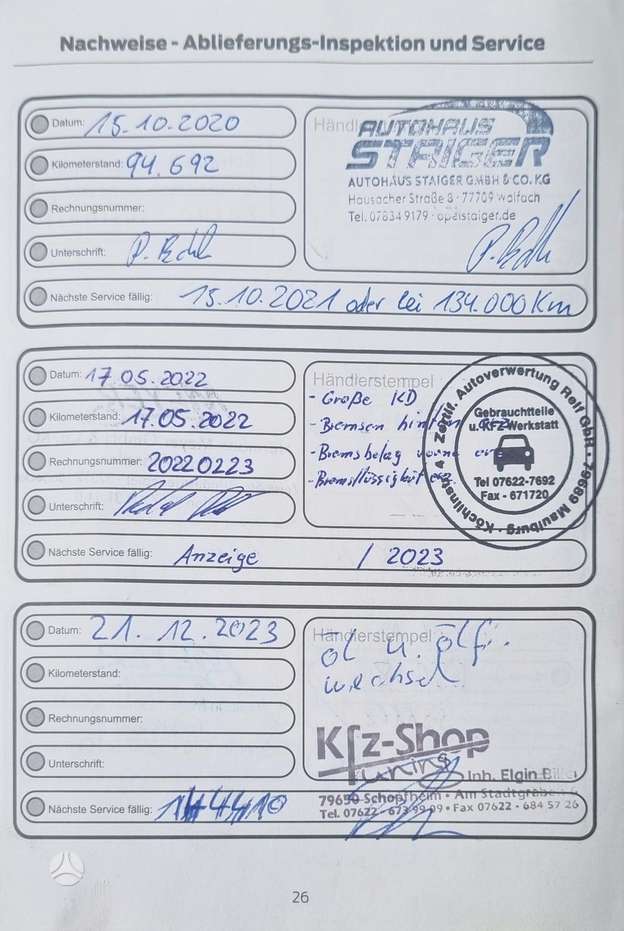 Nachweise - Ablieferungs-Inspektion und Service
Datum: 15.10.2020
Kilometerstand: 94.692
Rechnungsnummer:
Unterschrift:
Nächste Service fällig: 15.10.2021 oder bei 134.000 Km
AUTOHAUS
STAIGER
AUTOHAUS STAIGER GMBH & CO. KG
Hausacher Straße 8 · 77709 Wolfach
Tel. 07834 9179 · opelstaiger.de
Datum: 17.05.2022
Kilometerstand: 17.05.2022
Rechnungsnummer: 20220223
Unterschrift:
Nächste Service fällig: Anzeige / 2023
Händlerstempel
- Große KD
- Bremsen
- Bremsbelag
- Bremsflüssigkeit
Zertif. Autoverwertung Reif GbR · 79689 Maulburg · Köchlinstr. 4
Gebrauchtteile
u. KFZ Werkstatt
Tel 07622-7692
Fax - 671720
Datum: 21.12.2023
Kilometerstand:
Rechnungsnummer:
Unterschrift:
Nächste Service fällig:
Händlerstempel
öl u. ölfi.
wechsel
Kfz-Shop
Tuning
Inh. Elgin
79650 Schopfheim · Am Stadtgraben
Tel. 07622 - 673 99 09 · Fax 07622 - 684 57 26
26